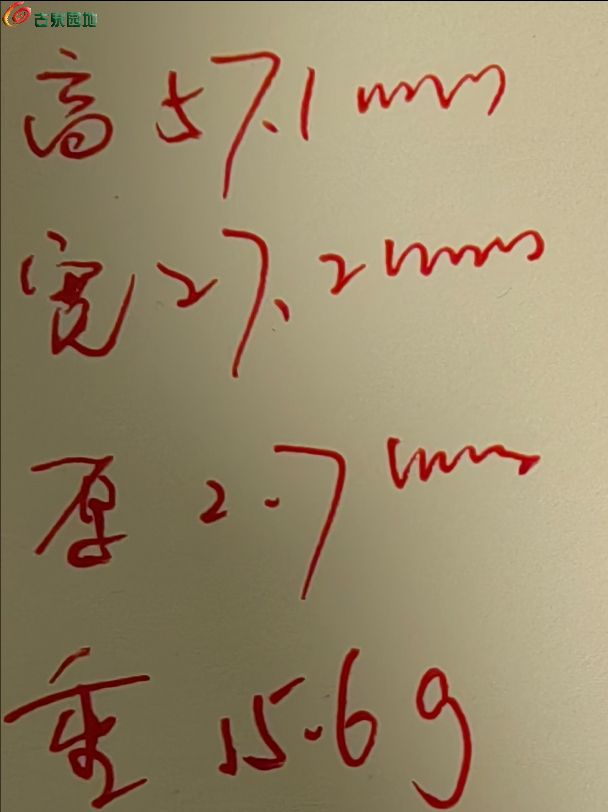 古泉园地
高 57.1 mm
宽 27.2 mm
厚 2.7 mm
重 15.6 g